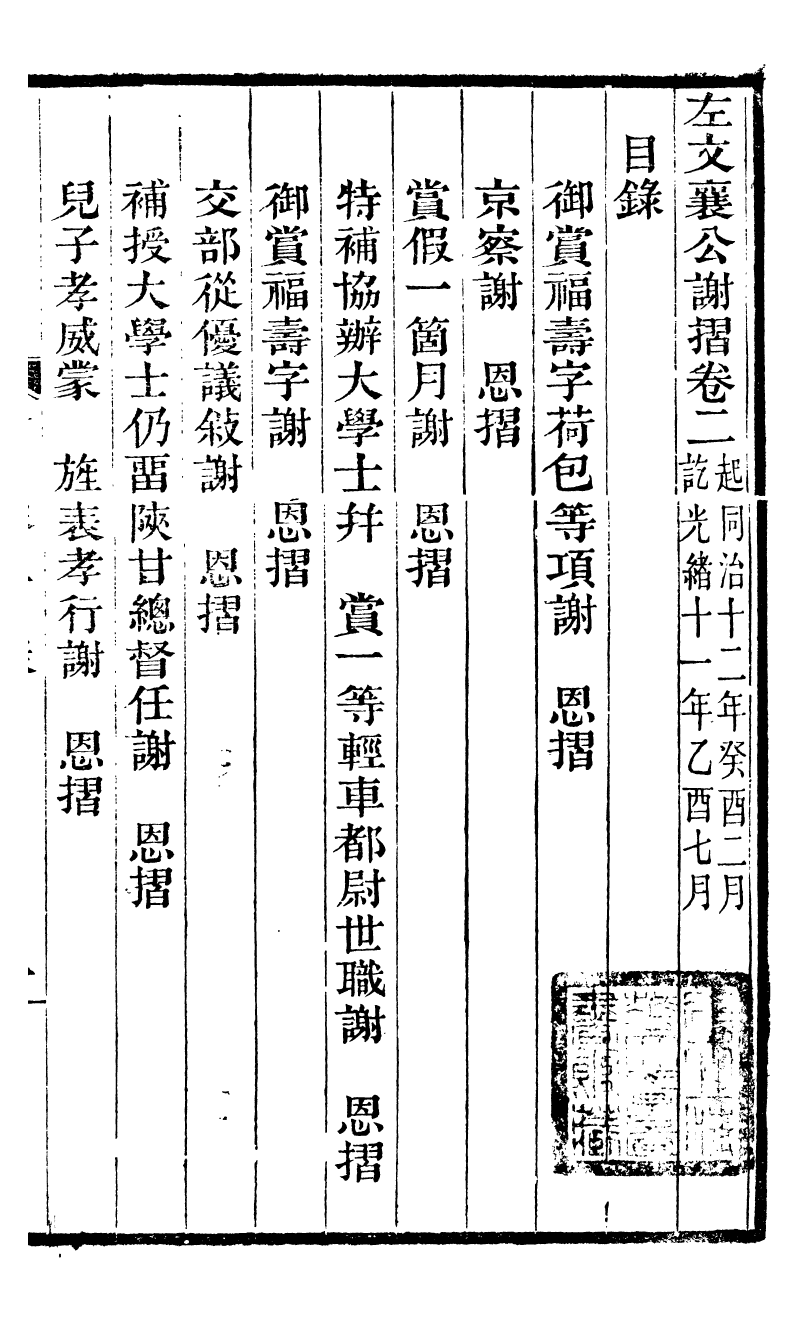 左文襄公謝摺卷二起同治十二年癸酉二月訖光緒十一年乙酉七月
目錄
御賞福壽字荷包等項謝　恩摺
京察謝　恩摺
賞假一箇月謝　恩摺
特補協辦大學士幷　賞一等輕車都尉世職謝　恩摺
御賞福壽字謝　恩摺
交部從優議敘謝　恩摺
補授大學士仍畱陝甘總督任謝　恩摺
兒子孝威蒙　旌表孝行謝　恩摺